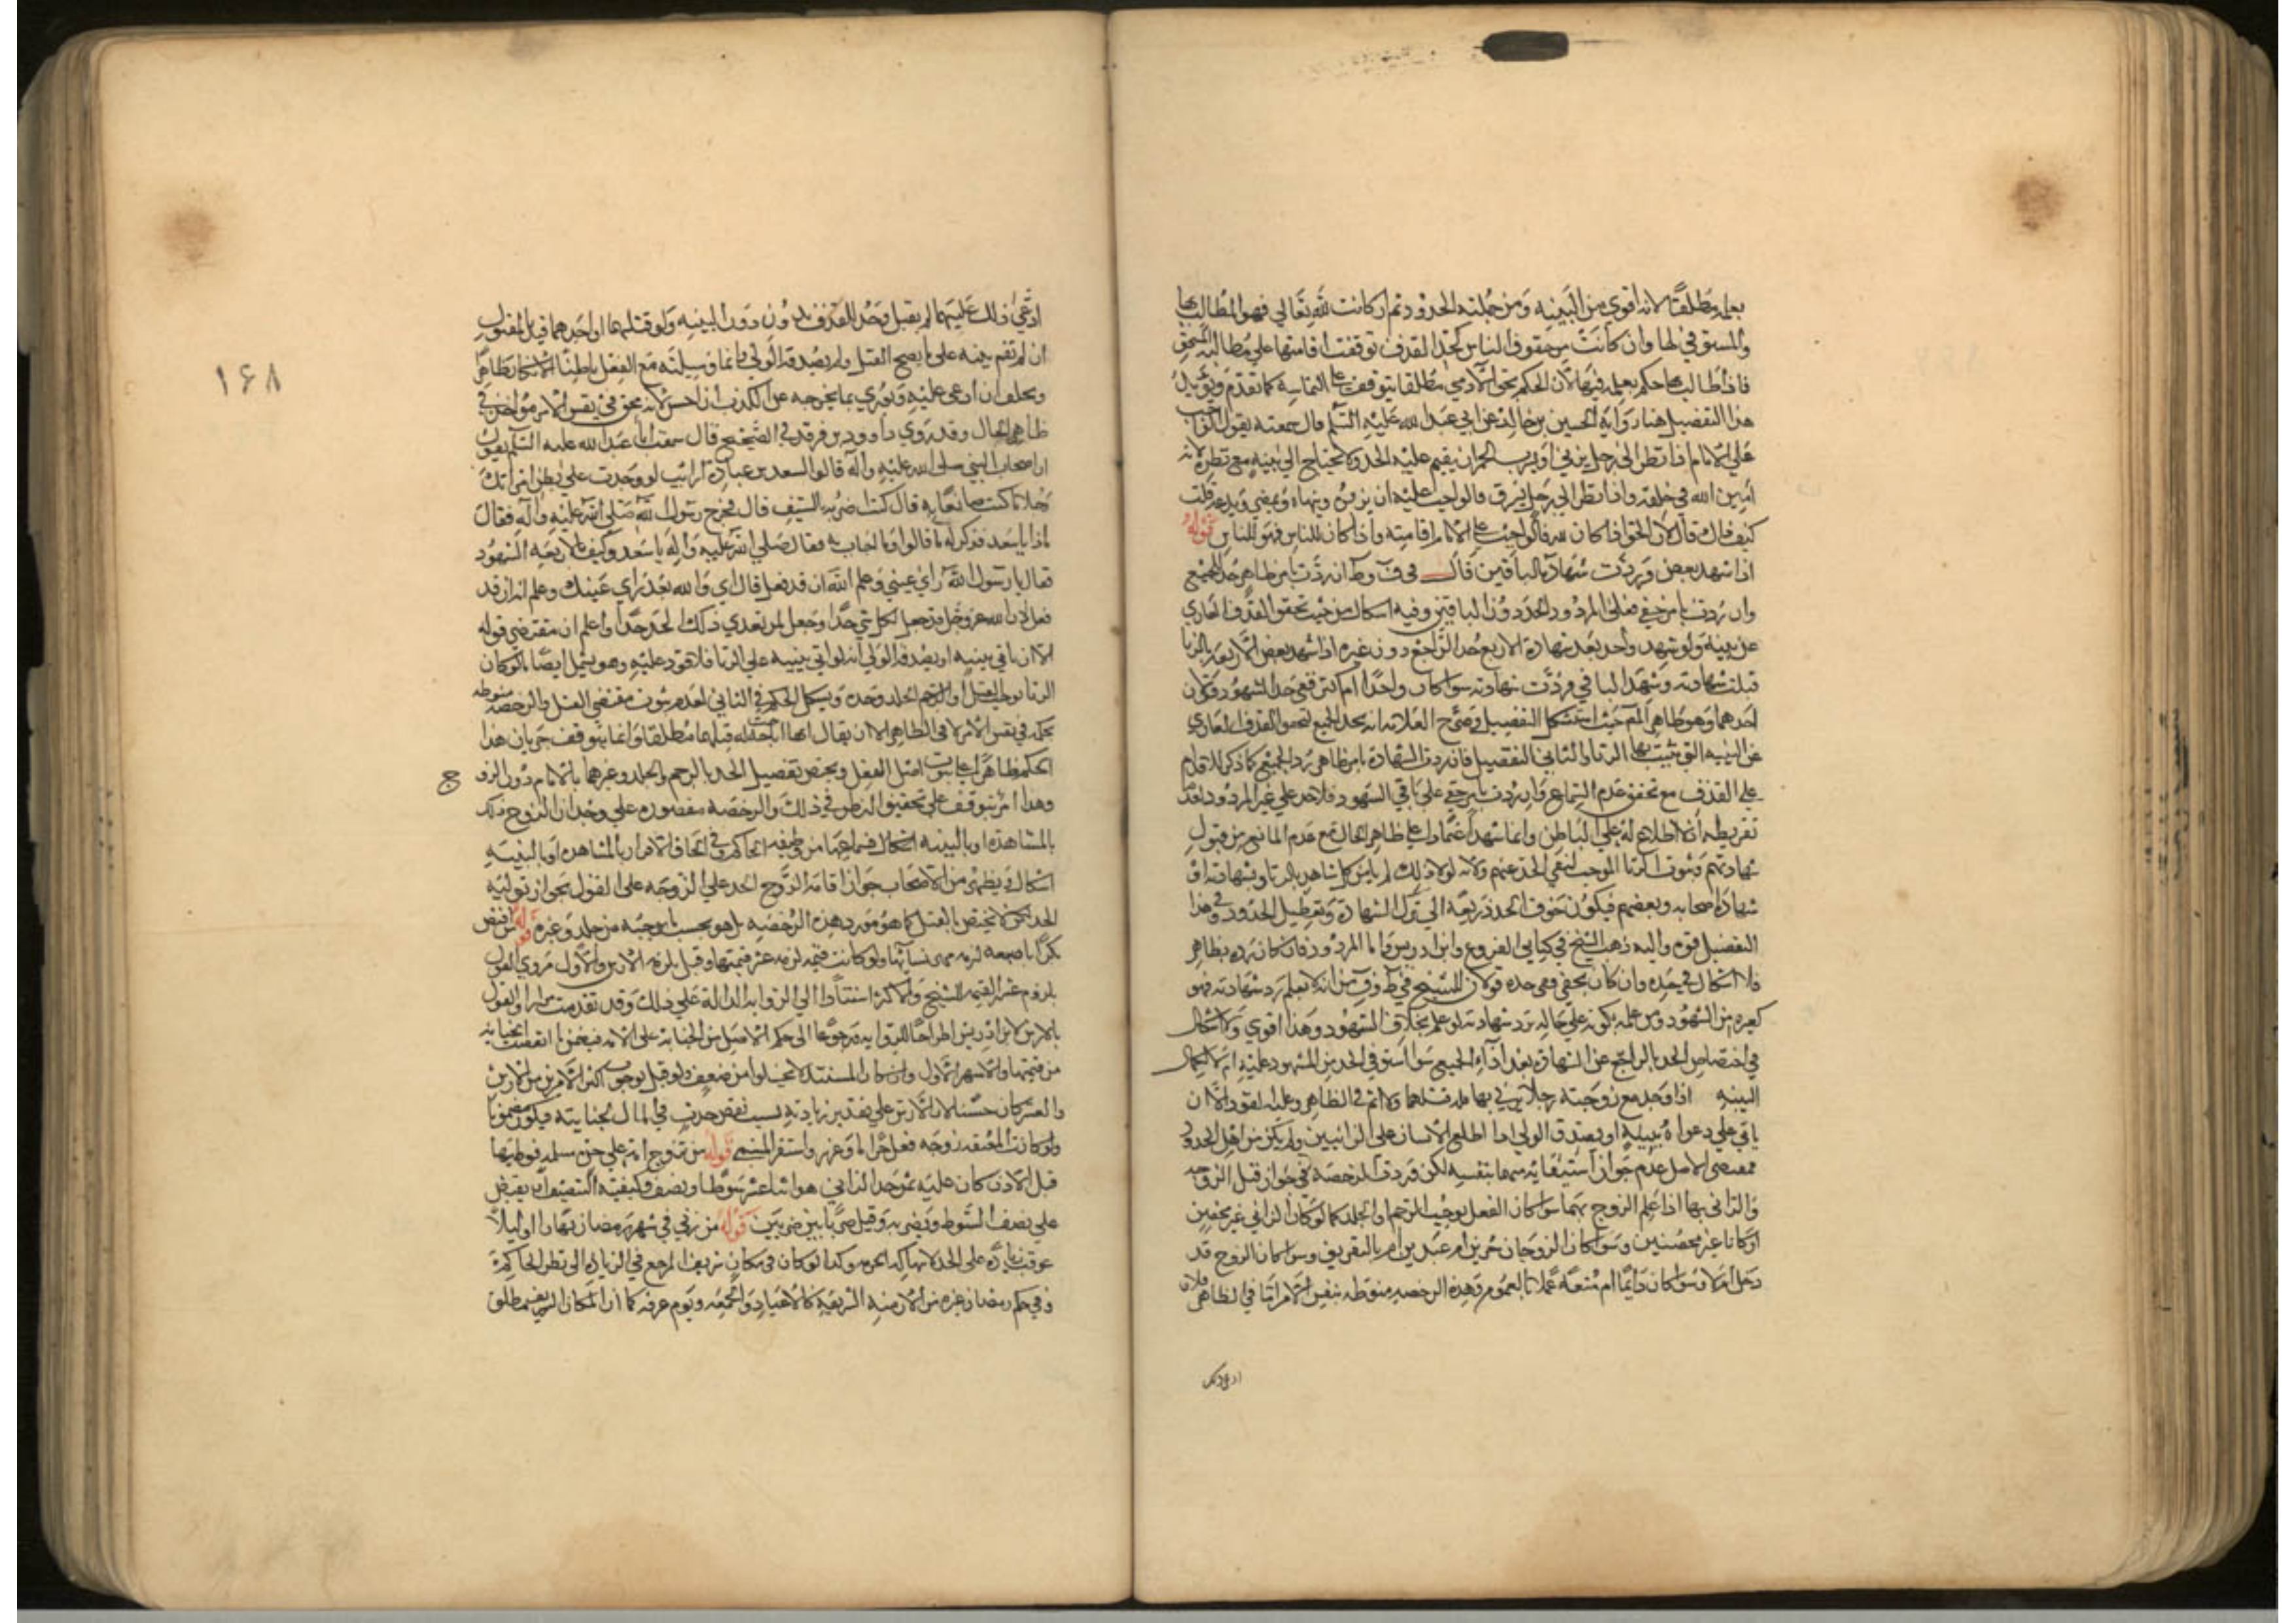 بعلمه مطلقا لانه اقوى من البينه ومن جملته الحدود ثم ان كانت لله تعالي فهو المطالب بها
والمستوفي لها وان كانت من حقوق الناس كحد القذف توقفت اقامتها علي مطالبه المستحق
فاذا طالب بها حكم بعلمه فيها لان الحكم بحق الآدمي مطلقا يتوقف على التماسه كما تقدم ويؤيد
هذا التفصيل هنا رواية الحسين بن خالد عن ابي عبد الله عليه السلم قال سمعته يقول الواجب
علي الامام اذا نظر الي رجل يزني او يشرب الخمر ان يقيم عليه الحد ولا يحتاج الي بينه مع نظره لانه
امين الله في خلقه واذا نظر الي رجل يسرق فالواجب عليه ان يزبره وينهاه ويمضي ويدعه قلت
كيف ذاك قال لان الحق اذا كان لله فالواجب على الامام اقامته واذا كان للناس فهو للناس قوله
اذا شهد بعض وردت شهادة الباقين قال في ف وط ان ردت بامر ظاهر حد الجميع
وان ردت بامر خفي فعلى المردود الحد دون الباقين وفيه اشكال من حيث تحقق القذف العاري
عن بينه ولو شهد واحد بعد شهادة الاربع حد الراجع دون غيره اذا شهد بعض الاربعه بالزنا
قبلت شهادته وشهد الباقي فردت شهادته سوا كان واحدا ام اكثر ففي حد الشهود قولان
احدهما وهو ظاهر المص حيث استشكل التفصيل وصرح العلامه انه يحد الجميع لتحقق القذف العاري
عن البينه التي يثبت بها الزنا والثاني التفصيل فان ردت الشهادة بامر ظاهر حد الجميع كما ذكر للاقدام
على القذف مع تحقق عدم السماع وان ردت بامر خفي علي باقي الشهود فلا حد علي غير المردود لعدم
تفريطه اذ لا اطلاع له على الباطن وانما شهد اعتمادا على ظاهر الحال مع عدم المانع من قبول
شهادتهم وثبوت الزنا الموجب لنفي الحد عنهم ولانه لولا ذلك لم يامن كل شاهد بالزنا وشهادته او
شهادة اصحابه وبعضهم فيكون خوف الحد ذريعة الي ترك الشهادة وتعطيل الحدود وهذا
التفصيل قوي واليه ذهب الشيخ في كتابي الفروع وابن ادريس واما المردود فان كان رده بظاهر
فلا اشكال في حده وان كان بخفي ففي حده قولان للشيخ في ط وف من انه لا يعلم رد شهادته فهو
كغيره من الشهود ومن علمه بكونه علي حاله ترد شهادته لو علم بخلاف الشهود وهذا اقوي ولا اشكال
في اختصاص الحد بالراجع عن الشهادة بعد اداء الجميع سوا استوفي الحد من المشهود عليه ام لا لكمال
البينه اذا وجد مع زوجته رجلا يزني بها فله قتلهما ولا اثم في الظاهر وعليه القود الا ان
ياتي علي دعواه ببينه او يصدق الولي اذا اطلع الانسان على الزانيين ولم يكن من اهل الحدود
فمقتضى الاصل عدم جواز استيفائه منهما بنفسه لكن وردت الرخصة في جواز قتل الزوجه
والزاني بها اذا علم الزوج بهما سوا كان الفعل يوجب الرجم او الجلد كما لو كان الزاني غير محصن
او كانا غير محصنين وسوا كان الزوجان حرين ام عبدين ام بالتفريق وسوا كان الزوج قد
دخل ام لا وسوا كان دايما ام متعة عملا بالعموم وهذه الرخصه منوطه بنفس الامر اما في الظاهر فلان
ان ادعى ذلك
ادعي ذلك عليهما لم يقبل وحد للقذف بدون دون البينه ولو قتلهما او احدهما قيل للمقتول
ان لم تقم بينه على ما يبيح القتل ولم يصدقه الولي وانما وسيلته مع الفعل باطنا الانكار ظاهرا
ويحلف ان ادعي عليه ويوري بما يخرجه عن الكذب ان احسن لانه محق في نفس الامر مؤاخذ في
ظاهر الحال وقد روي داوود بن فرقد في الصحيح قال سمعت ابا عبد الله عليه السلم يقول
ان اصحاب النبي صلى الله عليه وآله قالوا لسعد بن عبادة ارايت لو وجدت علي بطن امراتك
رجلا ما كنت صانعا به قال كنت اضربه بالسيف قال فخرج رسول الله صلى الله عليه وآله فقال
ماذا يا سعد فذكر له ما قالوا وما اجاب به فقال صلى الله عليه وآله يا سعد وكيف بالاربعه الشهود
فقال يا رسول الله بعد راي عيني وعلم الله ان قد فعل قال اي والله بعد راي عينك وعلم الله ان قد
فعل لان الله عز وجل قد جعل لكل شي حدا وجعل لمن تعدي ذلك الحد حدا واعلم ان مقتضي قوله
الا ان ياتي ببينه او يصدقه الولي انه لو اتي ببينه علي الزنا فلا قود عليه وهو يشمل ايضا ما لو كان
الزنا يوجب القتل او الرجم او الجلد وحده ويشكل الحكم في الثاني لعدم ثبوت مقتضي القتل والرخصه منوطه
بحكمه في نفس الامر لا في الظاهر الا ان يقال اباحة قتلهما مطلقا وانما يتوقف جريان هذا
الحكم ظاهرا على ثبوت اصل الفعل ويختص تفصيل الحد بالرجم والجلد وغيرهما بالامام دون الزوج
وهذا امر يتوقف علي تحقيق النظر في ذلك والرخصه مقصوره علي وجدان الزوج ذلك
بالمشاهده او بالبينه اشكال فيما عداها من طريقه الحاكم وفي الحاق الاقرار بالمشاهده او بالبينه
اشكال ويظهر من الاصحاب جواز اقامة الزوج الحد علي الزوجه على القول بجواز توليه
الحد لكن لا يختص بالقتل كما هو مورد هذه الرخصه بل هو بحسب ما يوجبه من جلد وغيره قوله من افتض
بكرا باصبعه لزمه مهر نسائها ولو كانت قنه لزمه عشر قيمتها وقيل يلزمه الارش والاول مروي القول
بلزوم عشر القيمه للشيخ والاكثر استنادا الي الرواية الدالة علي ذلك وقد تقدمت مرارا والقول
بالارش لابن ادريس اطراحا للرواية ورجوعا الي حكم الاصل من الجنايه على الامه
من قيمتها والاشهر الاول وان كان المستند لا يخلو من ضعف ولو قيل بوجوب اكثر الامرين من الارش
والعشر كان حسنا لان الارش علي تقدير زيادته بسبب نقص حدث في المال بجنايته فيكون مضمونا
ولو كانت المفتضه زوجه فعل حراما وعزر واستقر المسمى قوله من تزوج امه على حرة مسلمه فوطيها
قبل الاذن كان عليه ثمن حد الزاني هو اثنا عشر سوطا ونصف وكيفيه التنصيف ان يقبض
علي نصف السوط ويضربه وقيل ضربا بين ضربين قوله من زني في شهر رمضان نهارا او ليلا
عوقب زيادة على الحد لانتهاكه الحرمه وكذا لو كان في مكان شريف المرجع في الزياده الى نظر الحاكم
وفي حكم رمضان غيره من الازمنه الشريفه كالاعياد والجمعه ويوم عرفه كما ان المكان الشريف مطلق
۱۶۸